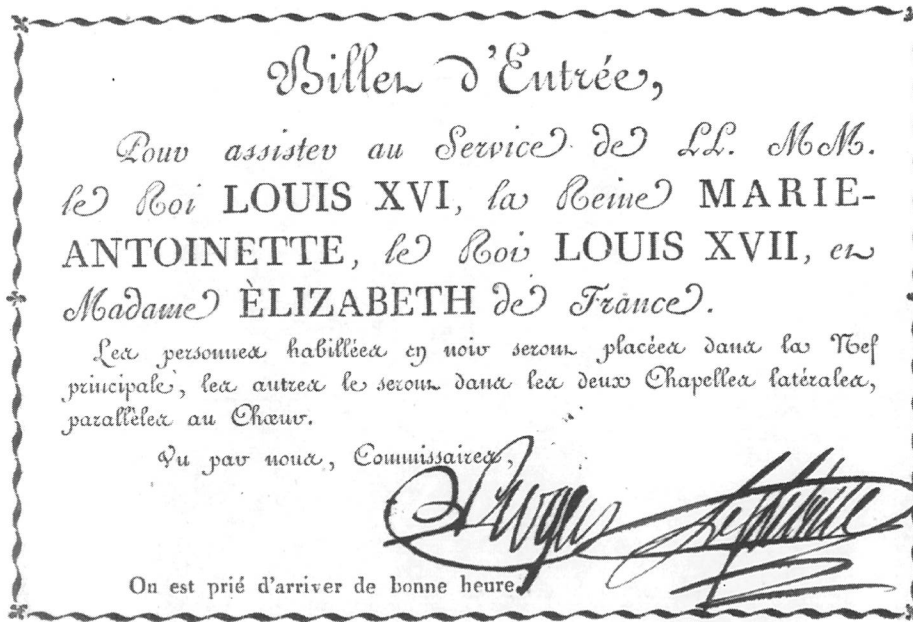 Billet d'Entrée,
Pour assister au Service de LL. MM.
le Roi LOUIS XVI, la Reine MARIE-
ANTOINETTE, le Roi LOUIS XVII, et
Madame ÈLIZABETH de France.
Les personnes habillées en noir seront placées dans la Nef
principale, les autres le seront dans les deux Chapelles latérales,
parallèles au Chœur.
Vu par nous, Commissaires,
On est prié d'arriver de bonne heure.